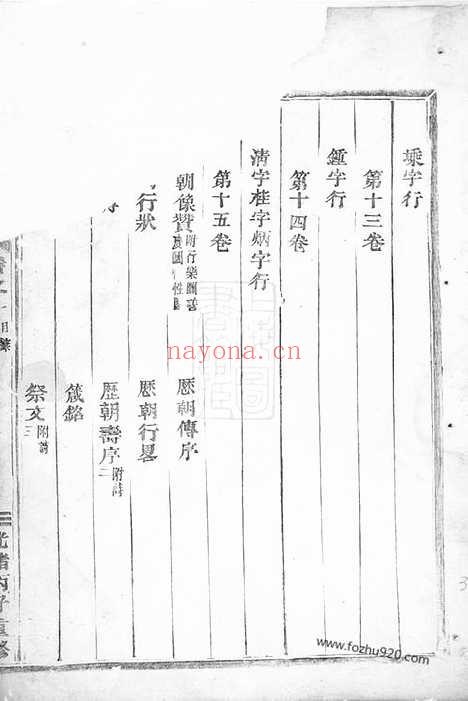 乗字行
第十三卷
鍾字行
第十四卷
清字桂字炳字行
第十五卷
朝像贊附行樂圖
歷朝傳序
行狀
歷朝行畧
歷朝壽序附詩
箴銘
祭文附詩
目錄
光緒丙子重修
nayona.cn
www.fozhu920.com